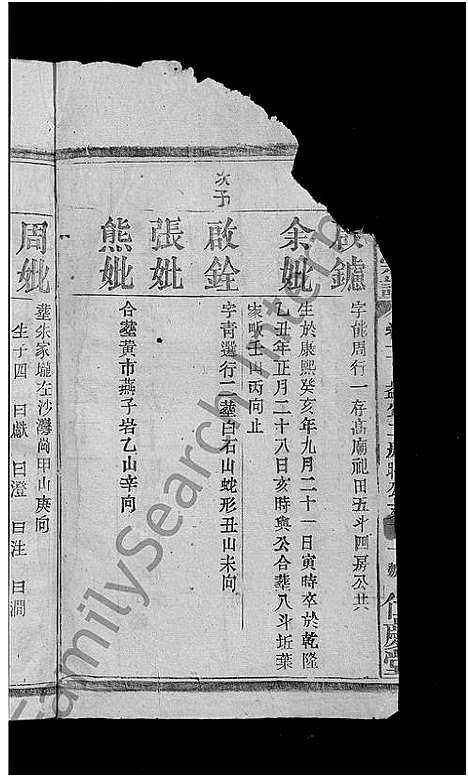 鑪
字能周行一存高廟祀田五斗四房公共
余妣
生於康熙癸亥年九月二十一日寅時卒於乾隆
乙丑年正月二十八日亥時與公合葬八斗坵葉
家畈壬山丙向止
次子
啟銓
字青選行二葬白石山蛇形丑山未向
張妣
熊妣
合葬黃市燕子岩乙山辛向
周妣
葬朱家壠左沙灣尚甲山庚向
生子四 曰獻 曰澄 曰注 曰澗
FamilySearch International